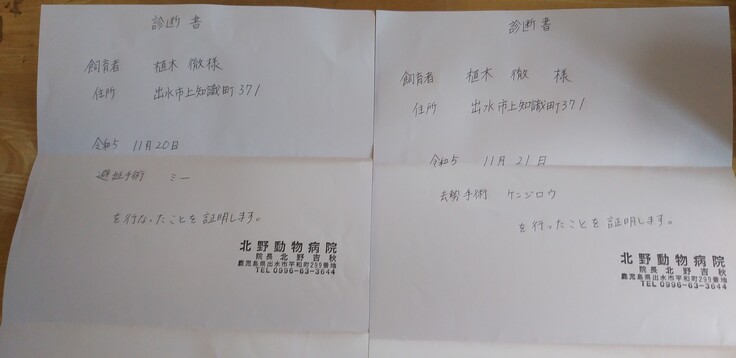 診断書
飼育者 植木 徹 様
住所 出水市上知識町371
令和5 11月20日
避妊手術 ミー
を行なったことを証明します。
北野動物病院
院長 北野吉秋
鹿児島県出水市平和町299番地
TEL 0996-63-3644
診断書
飼育者 植木 徹 様
住所 出水市上知識町371
令和5 11月21日
去勢手術 ケンジロウ
を行ったことを証明します。
北野動物病院
院長 北野吉秋
鹿児島県出水市平和町299番地
TEL 0996-63-3644